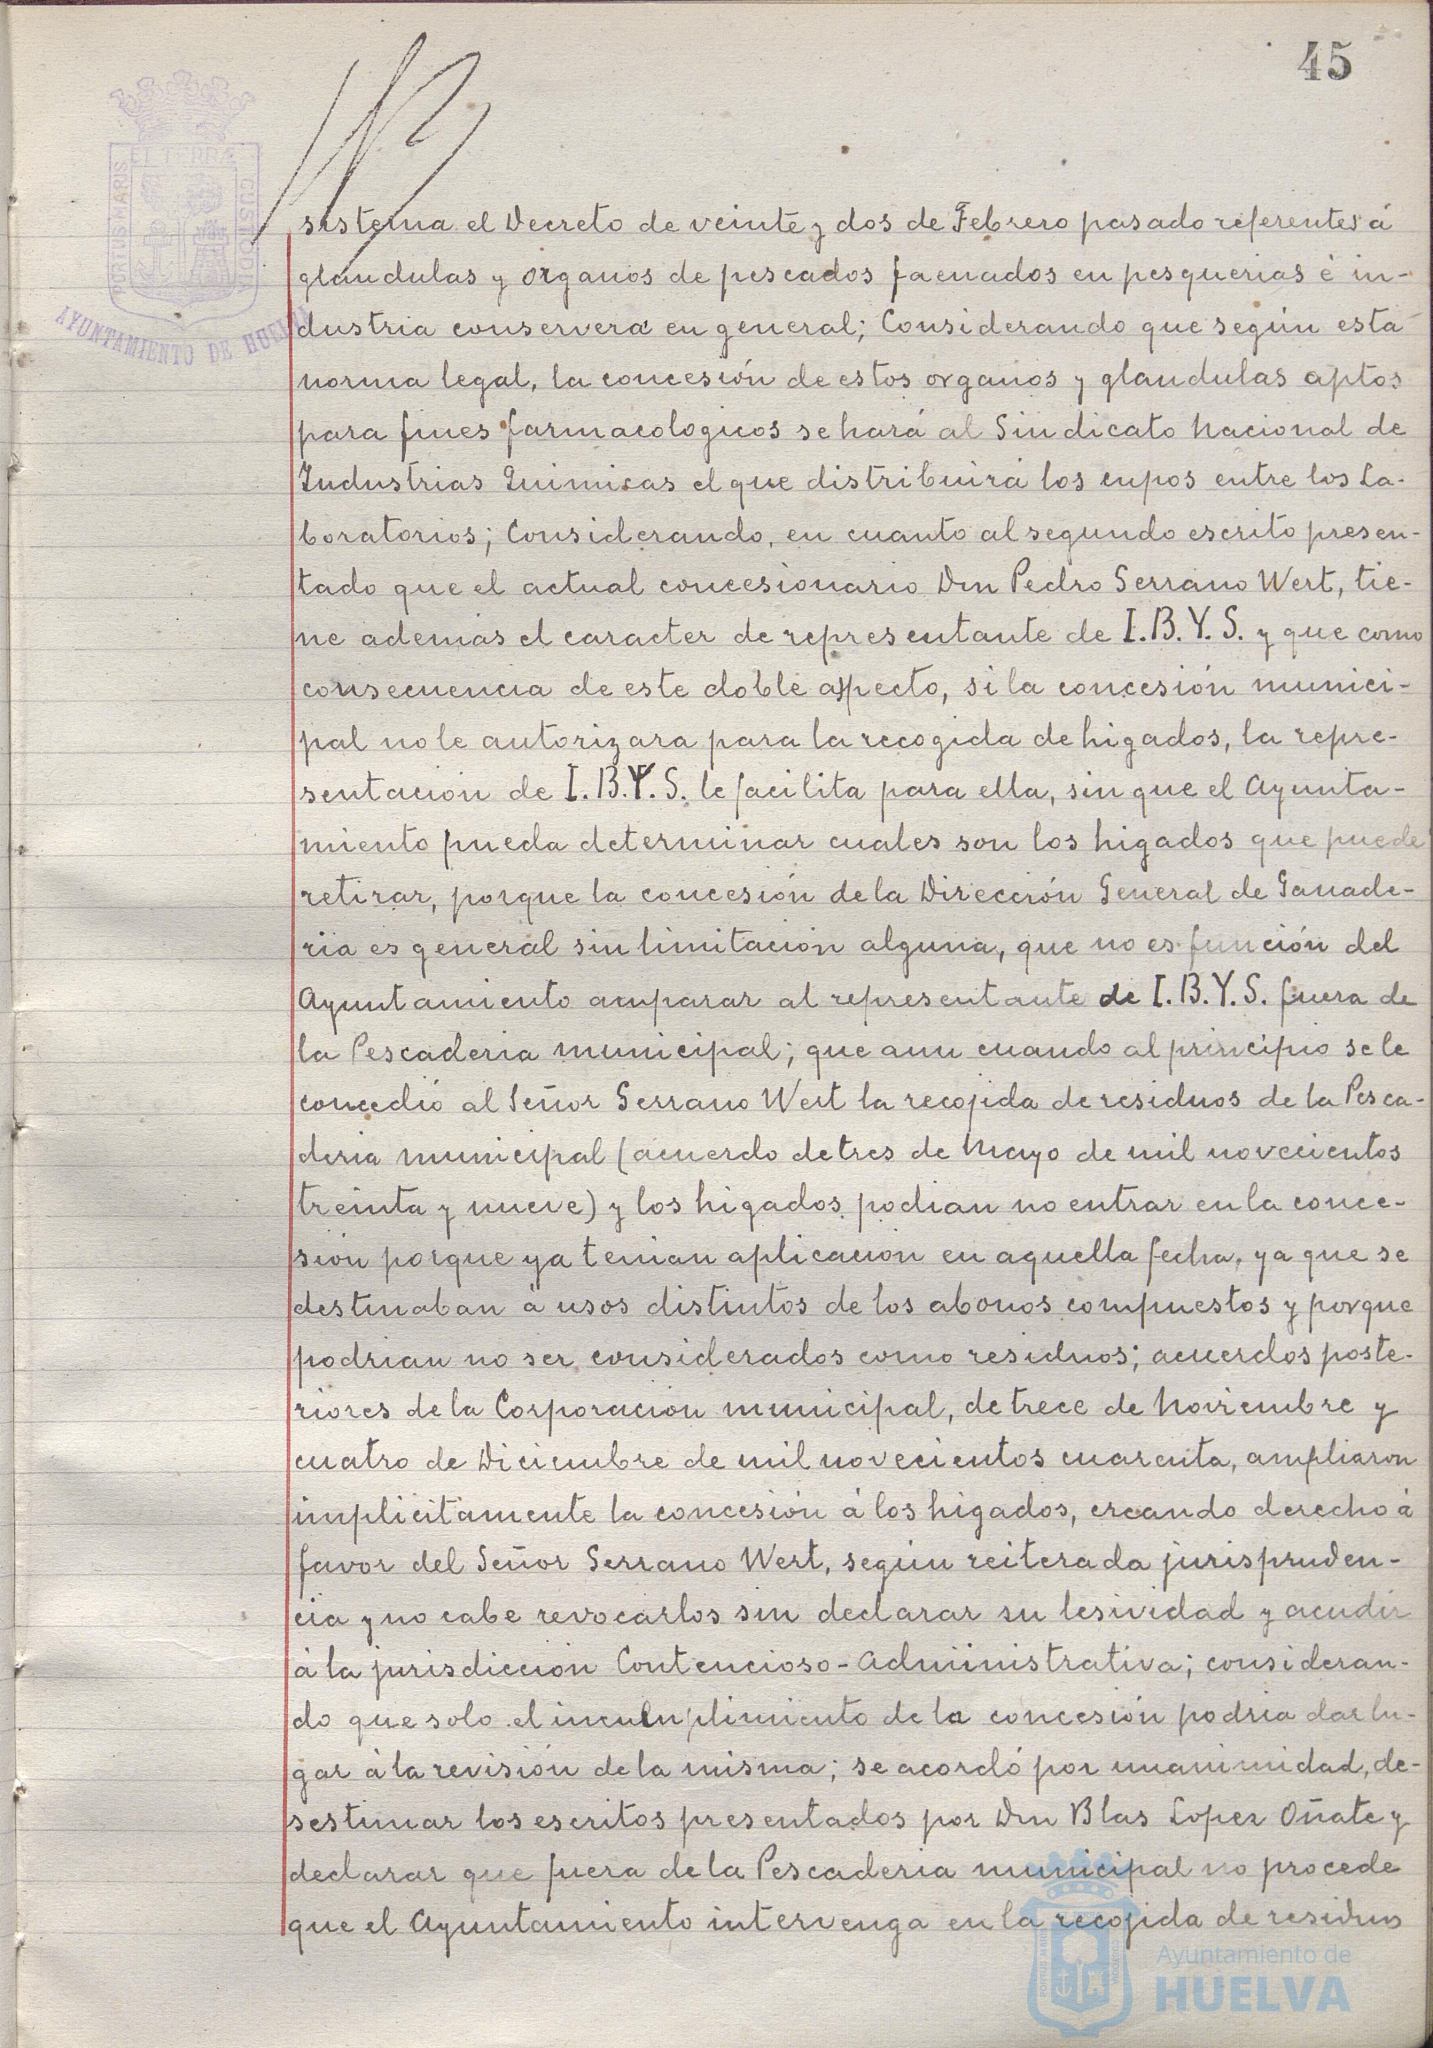 45
EL TERRÆ
PORTUS MARIS
CUSTODIA
AYUNTAMIENTO DE HUELVA
sistema el Decreto de veinte y dos de Febrero pasado referentes á
glandulas y organos de pescados faenados en pesquerias é in-
dustria conservera en general; Considerando que según esta
norma legal, la concesión de estos organos y glandulas aptos
para fines farmacologicos se hará al Sindicato Nacional de
Industrias Quimicas el que distribuirá los cupos entre los La-
boratorios; Considerando, en cuanto al segundo escrito presen-
tado que el actual concesionario Don Pedro Serrano Wert, tie-
ne ademas el caracter de representante de I.B.Y.S. y que como
consecuencia de este doble aspecto, si la concesión munici-
pal no le autorizara para la recogida de higados, la repre-
sentación de I.B.Y.S. le facilita para ella, sin que el Ayunta-
miento pueda determinar cuales son los higados que puede
retirar, porque la concesión de la Dirección General de Ganade-
ria es general sin limitación alguna, que no es función del
Ayuntamiento amparar al representante de I.B.Y.S. fuera de
la Pescaderia municipal; que aun cuando al principio se le
concedió al Señor Serrano Wert la recojida de residuos de la Pesca-
deria municipal (acuerdo de tres de Mayo de mil novecientos
treinta y nueve) y los higados podian no entrar en la conce-
sión porque ya tenian aplicación en aquella fecha, ya que se
destinaban á usos distintos de los abonos compuestos y porque
podrian no ser considerados como residuos; acuerdos poste-
riores de la Corporación municipal, de trece de Noviembre y
cuatro de Diciembre de mil novecientos cuarenta, ampliaron
implicitamente la concesión á los higados, creando derecho á
favor del Señor Serrano Wert, según reiterada jurispruden-
cia y no cabe revocarlos sin declarar su lesividad y acudir
á la jurisdicción Contencioso-Administrativa; consideran-
do que solo el incumplimiento de la concesión podria dar lu-
gar á la revisión de la misma; se acordó por unanimidad, de-
sestimar los escritos presentados por Don Blas Lopez Oñate y
declarar que fuera de la Pescaderia municipal no procede
que el Ayuntamiento intervenga en la recojida de residuos
Ayuntamiento de
HUELVA